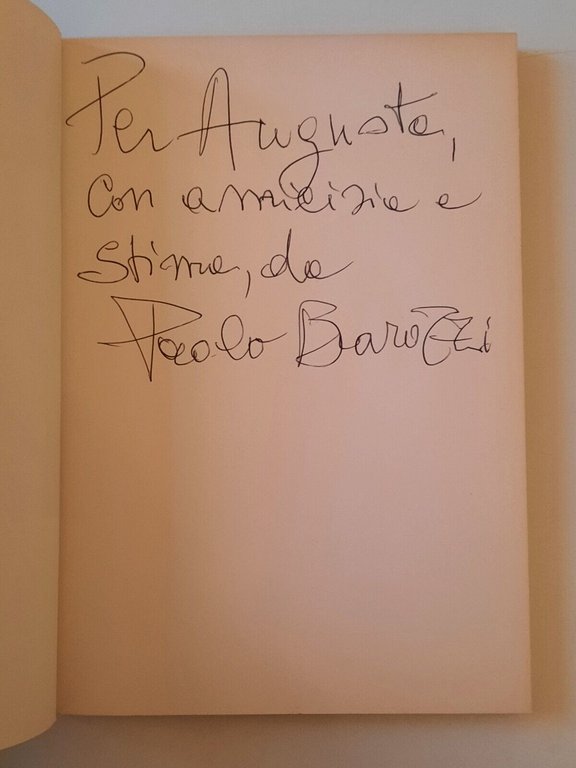 Per Augusta,
con amicizia e
stima, da
Paolo Barozzi